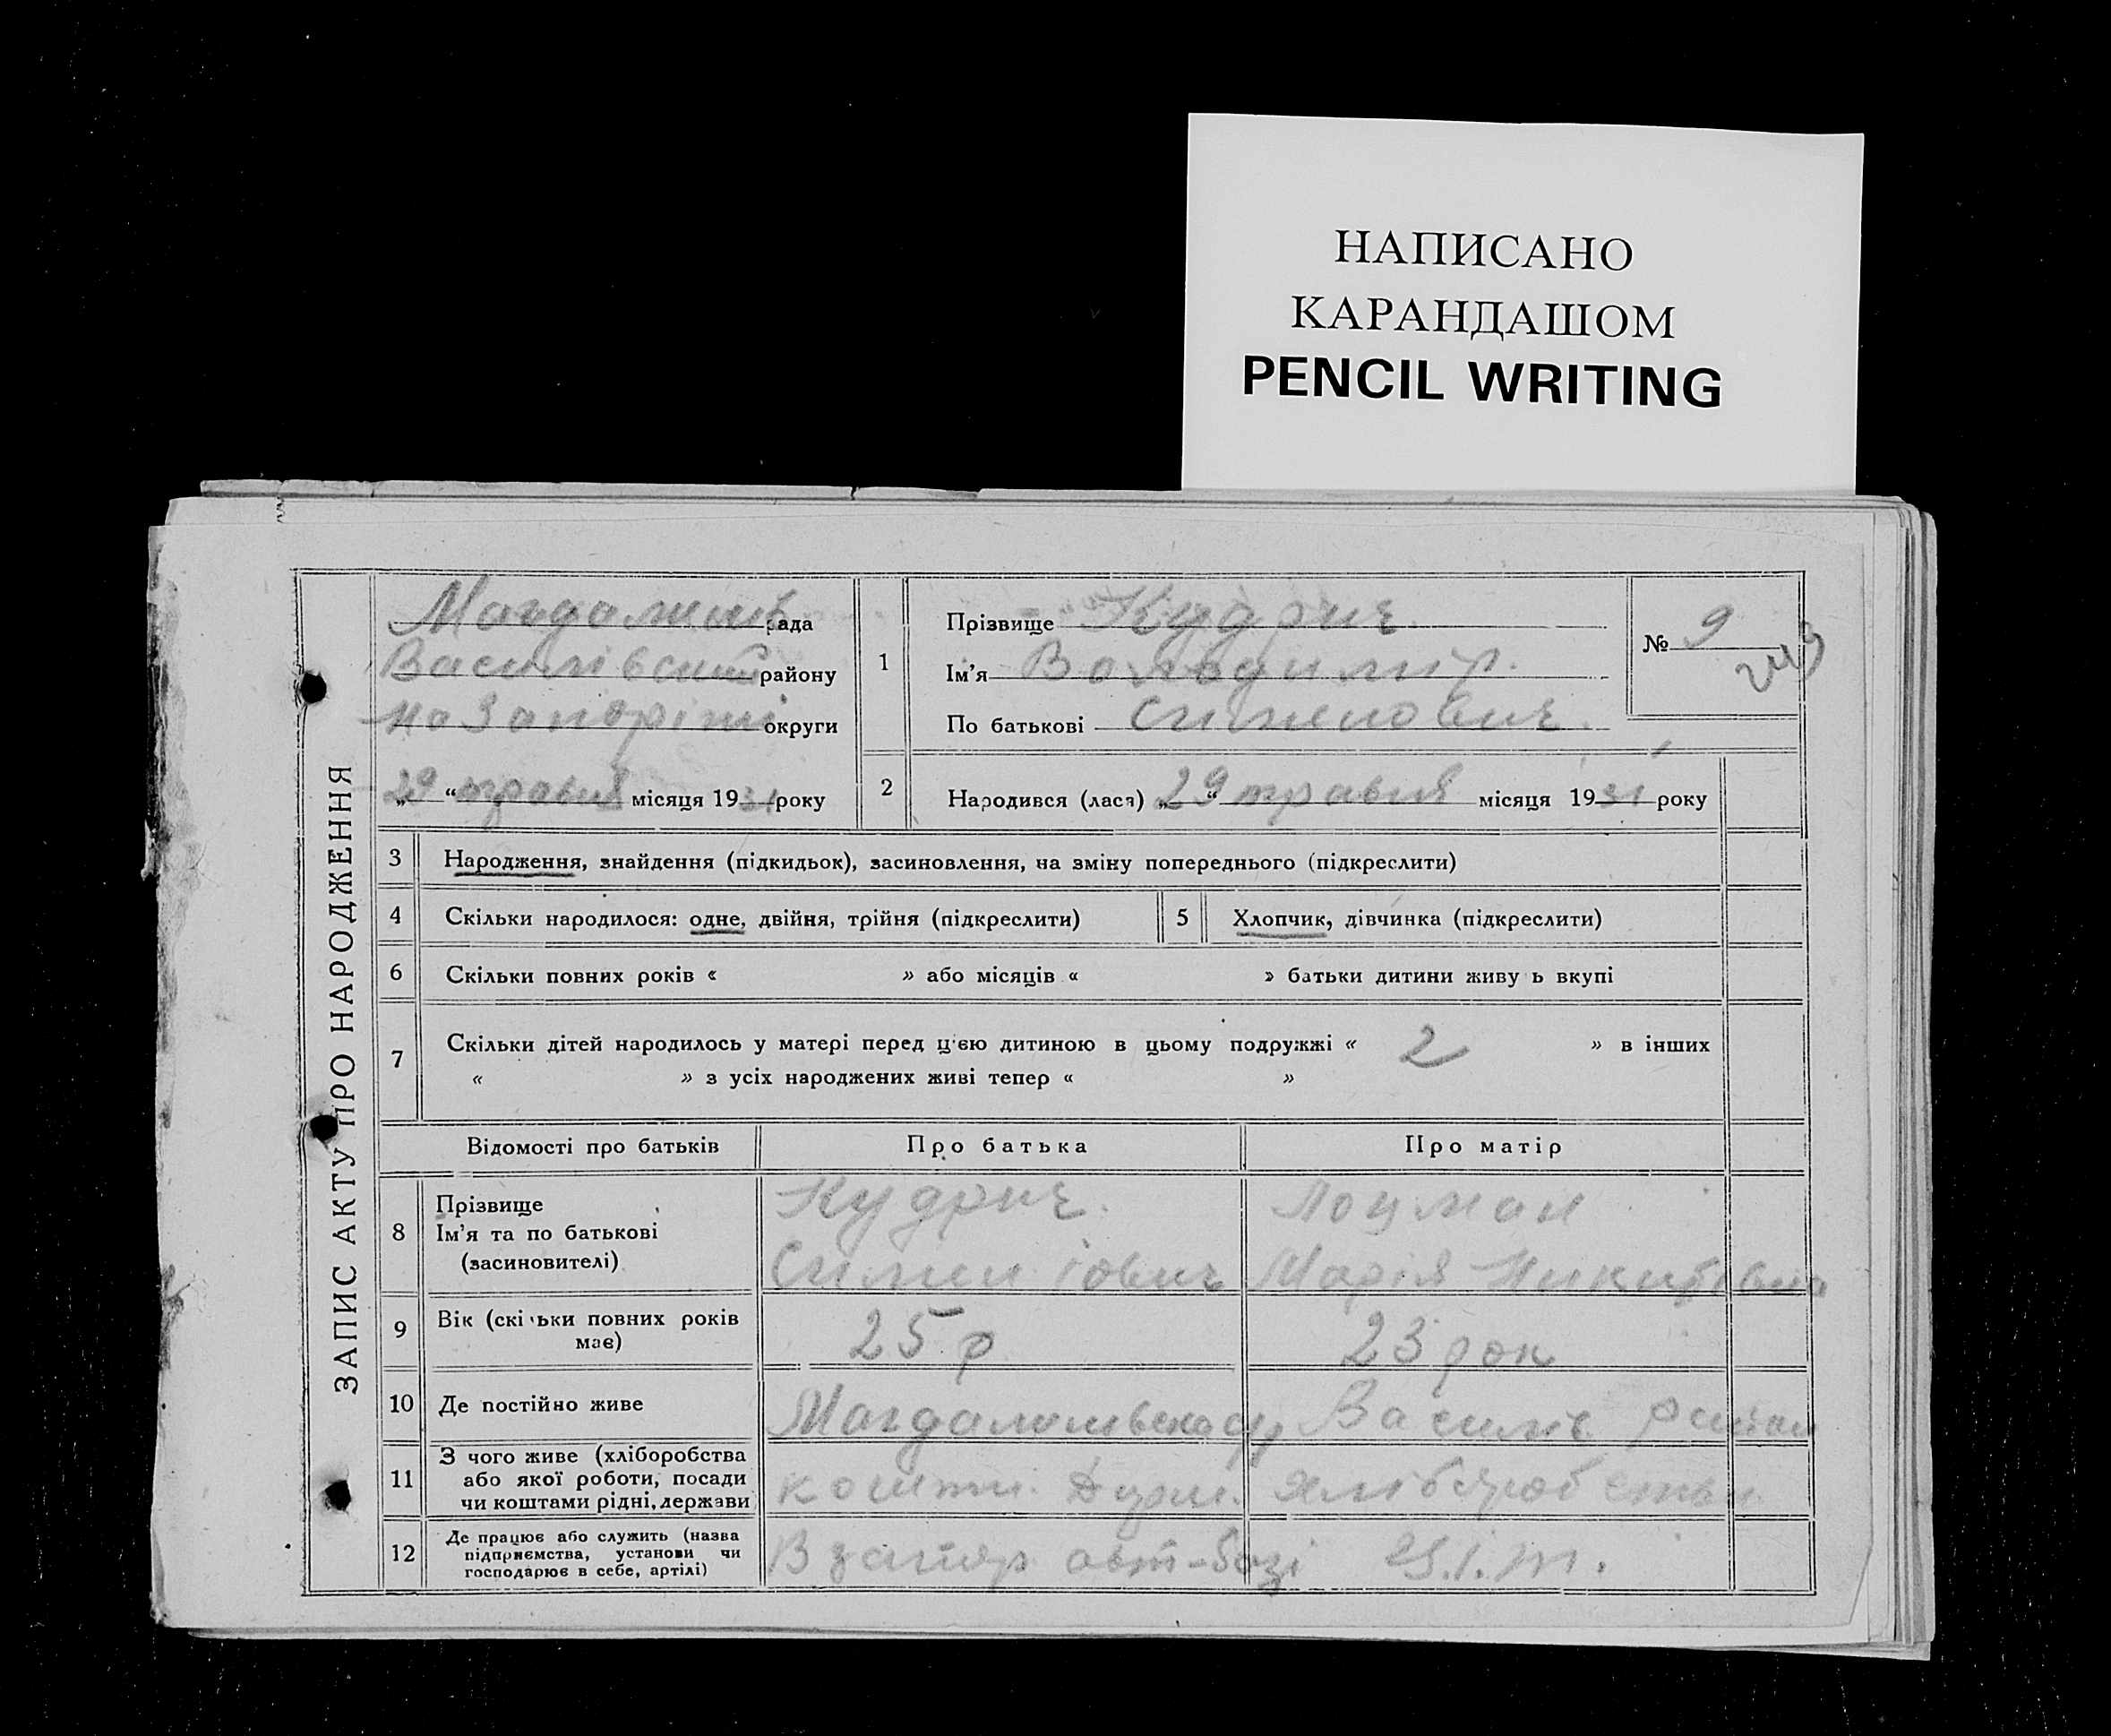 НАПИСАНО
КАРАНДАШОМ
PENCIL WRITING
ЗАПИС АКТУ ПРО НАРОДЖЕННЯ
рада
району
округи
„29“ травня місяця 1931 року
1
Прізвище Кудрич.
Ім'я Володимір.
По батькові Сименович.
№ 9
243
2
Народився (лася) „29“ травня місяця 1931 року
3 Народження, знайдення (підкидьок), засиновлення, на зміну попереднього (підкреслити)
4 Скільки народилося: одне, двійня, трійня (підкреслити)
5 Хлопчик, дівчинка (підкреслити)
6 Скільки повних років « » або місяців « » батьки дитини живу ь вкупі
7 Скільки дітей народилось у матері перед цією дитиною в цьому подружжі « 2 » в інших
« » з усіх народжених живі тепер « »
Відомості про батьків Про батька Про матір
8 Прізвище
Ім'я та по батькові
(засиновителі)
Кудрич.
Лоцман
Марія Никитівна
9 Вік (скі ьки повних років
має)
25 р
23 рок
10 Де постійно живе
Василів район
11 З чого живе (хліборобства
або якої роботи, посади
чи коштами рідні, держави
кошти.
12 Де працює або служить (назва
підприємства, установи чи
господарює в себе, артілі)
В запор авт-базі